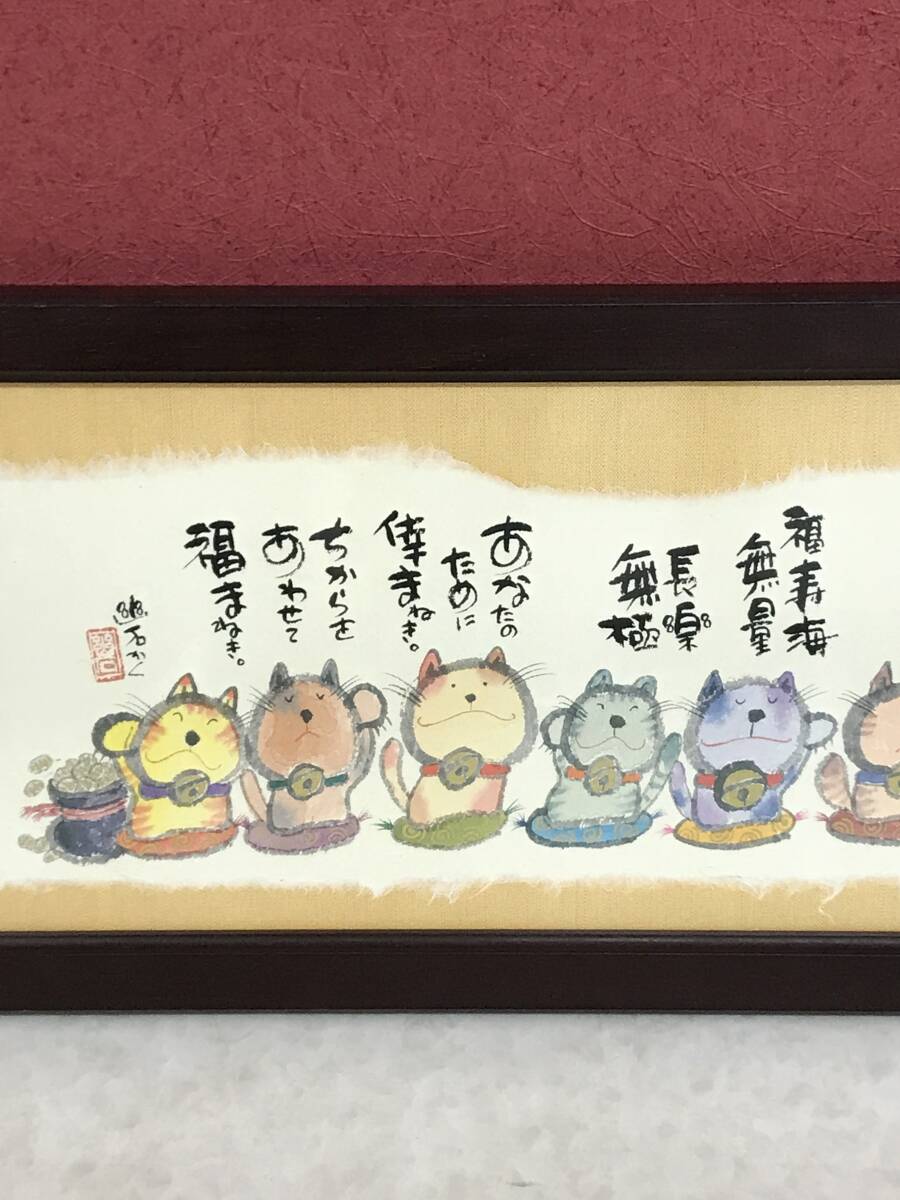 福寿海
無量
長樂
無極
あなたの
ために
倖まねき。
ちからを
あわせて
福まねき。